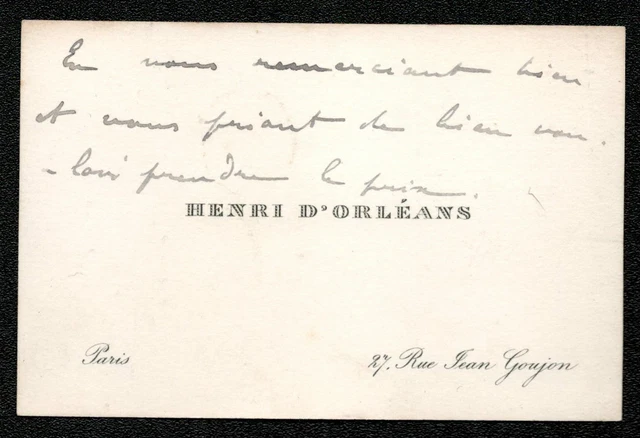 En vous remerciant bien
et vous priant de bien vou-
-loir prendre le prix.
HENRI D'ORLÉANS
Paris
27, Rue Jean Goujon